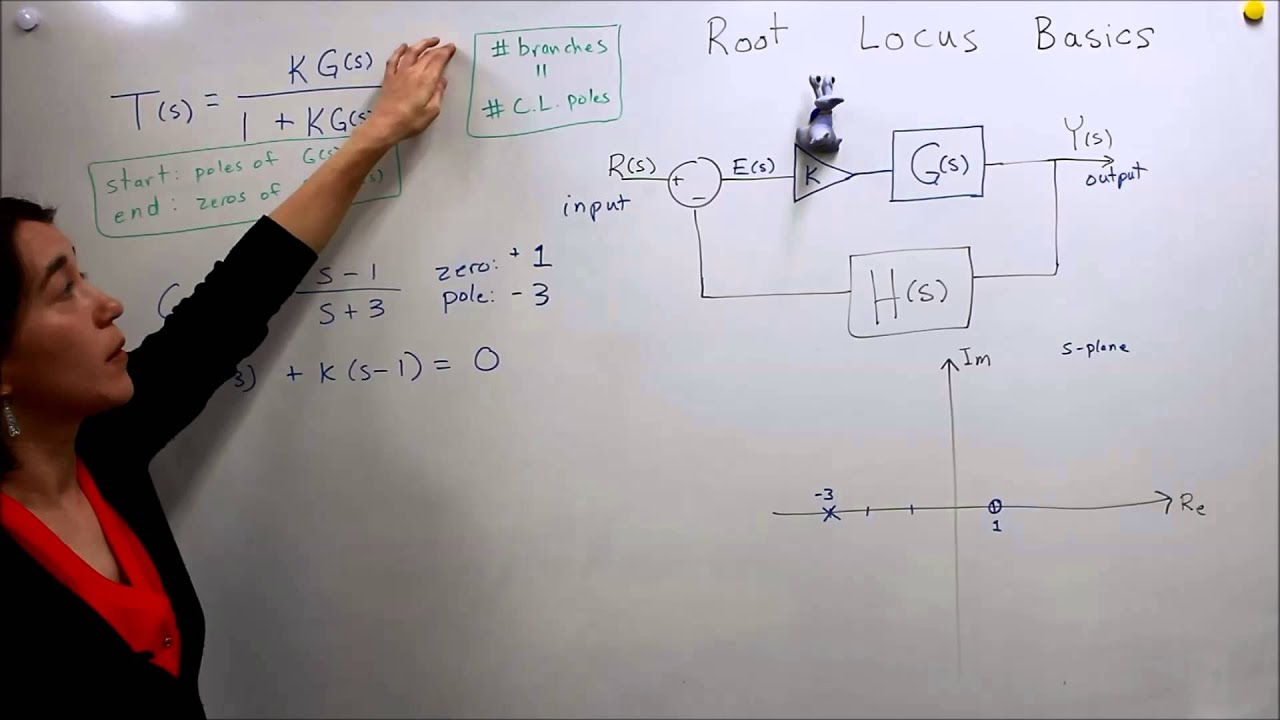 Root Locus Basics
K G(s)
T(s) =
1 + KG(s)
# branches
=
# C.L. poles
start: poles of G(s)
end: zeros of
s-1
s+3
zero: +1
pole: -3
3) + K(s-1) = 0
R(s)
input
+
-
E(s)
K
G(s)
Y(s)
output
H(s)
s-plane
Im
-3
1
Re